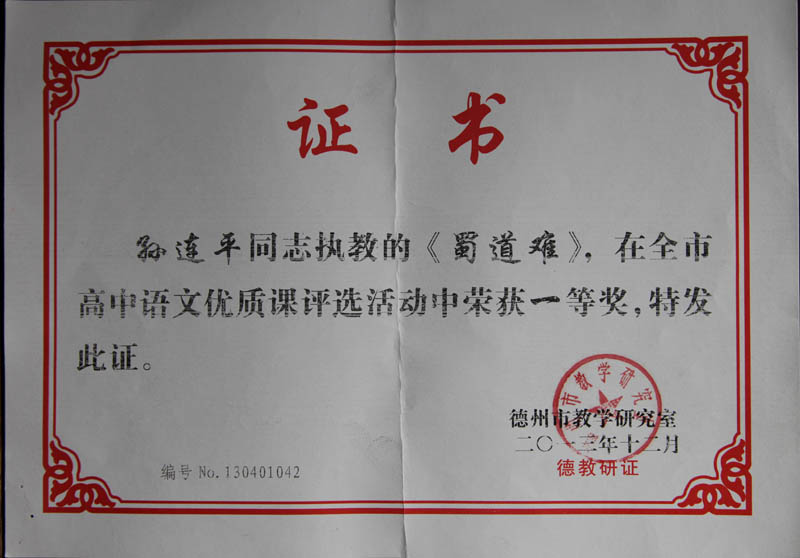 证书
孙连平同志执教的《蜀道难》，在全市
高中语文优质课评选活动中荣获一等奖，特发
此证。
市教学研究
德州市教学研究室
二〇一三年十二月
编号No.130401042
德教研证